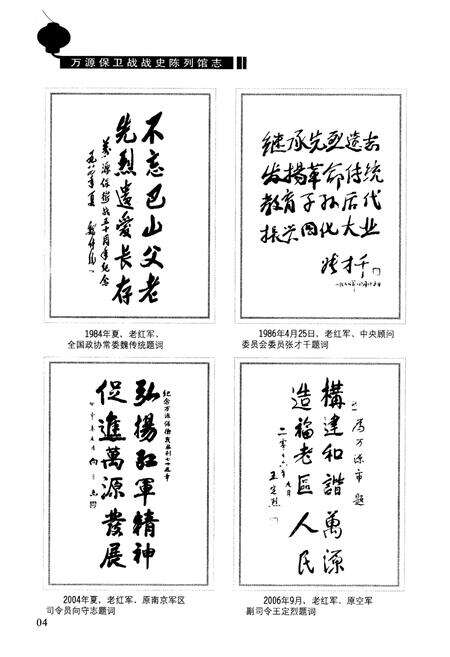 万源保卫战战史陈列馆志
不忘巴山父老
先烈遺愛長存
萬源保衛战五十周年纪念
一九八四年夏
继承先烈遗志
发揚革命传统
教育子孙后代
振兴四化大业
张才千
1984年夏、老红军、
全国政协常委魏传统题词
1986年4月25日、老红军、中央顾问
委员会委员张才千题词
弘揚紅軍精神
促進萬源發展
为万源市題
構建和諧萬源
造福老區人民
二零零六年九月
王定烈
2004年夏、老红军、原南京军区
司令员向守志题词
2006年9月、老红军、原空军
副司令王定烈题词
04